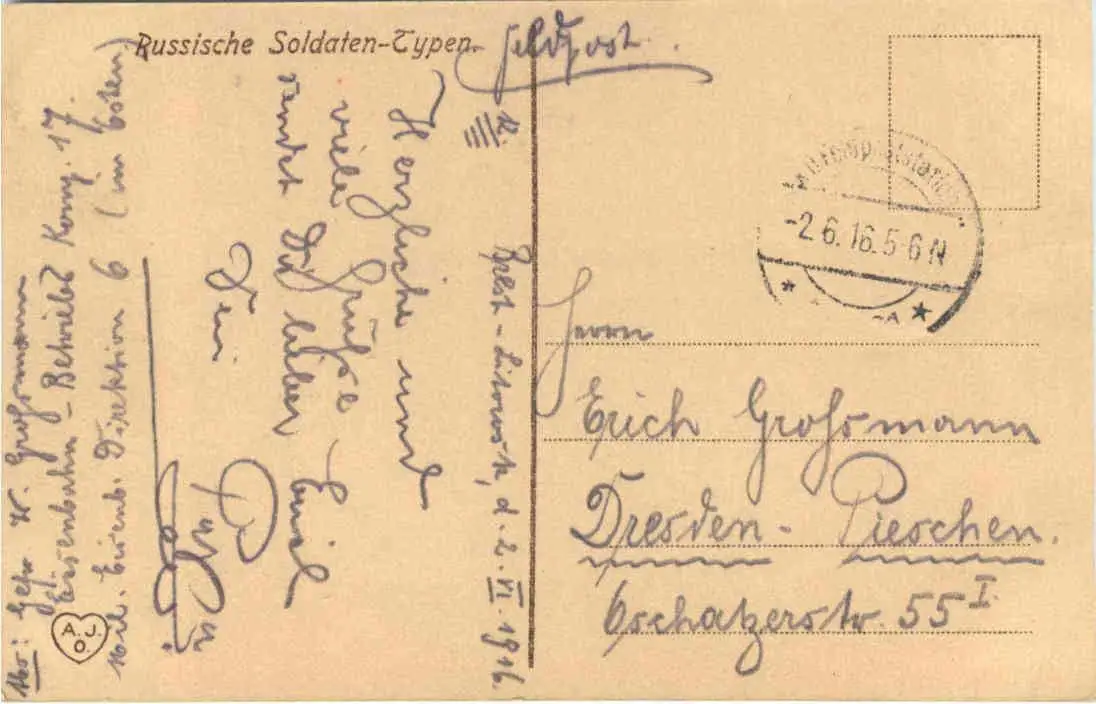 Russische Soldaten-Typen.
Feldpost.
Brest-Litowsk, d. 2. VI. 1916.
Herzliche und
viele Grüße
sendet Dir lieber Erich
Dein
Papa
Abs: Gefr. W. Großmann
Eisenbahn-Betriebs Komp. 17.
Mil. Eisenb. Direktion 6 (im Osten)
A. J.
O.
-2.6.16.5-6N
Herrn
Erich Großmann
Dresden-Pieschen.
Oschatzerstr. 55 I.